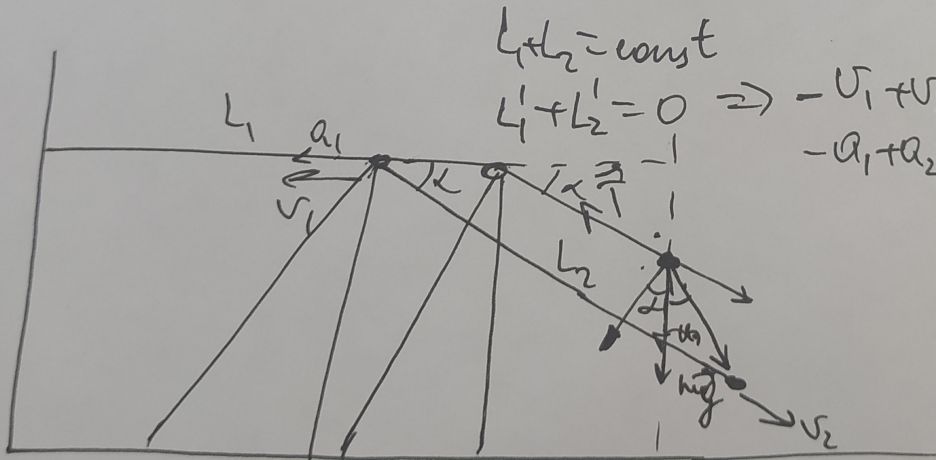 L₁+L₂=const
L₁'+L₂'=0 ⇒ -υ₁+υ
-a₁+a₂
L₁
a₁
υ₁
α
α
L₂
α
mg
υ₂